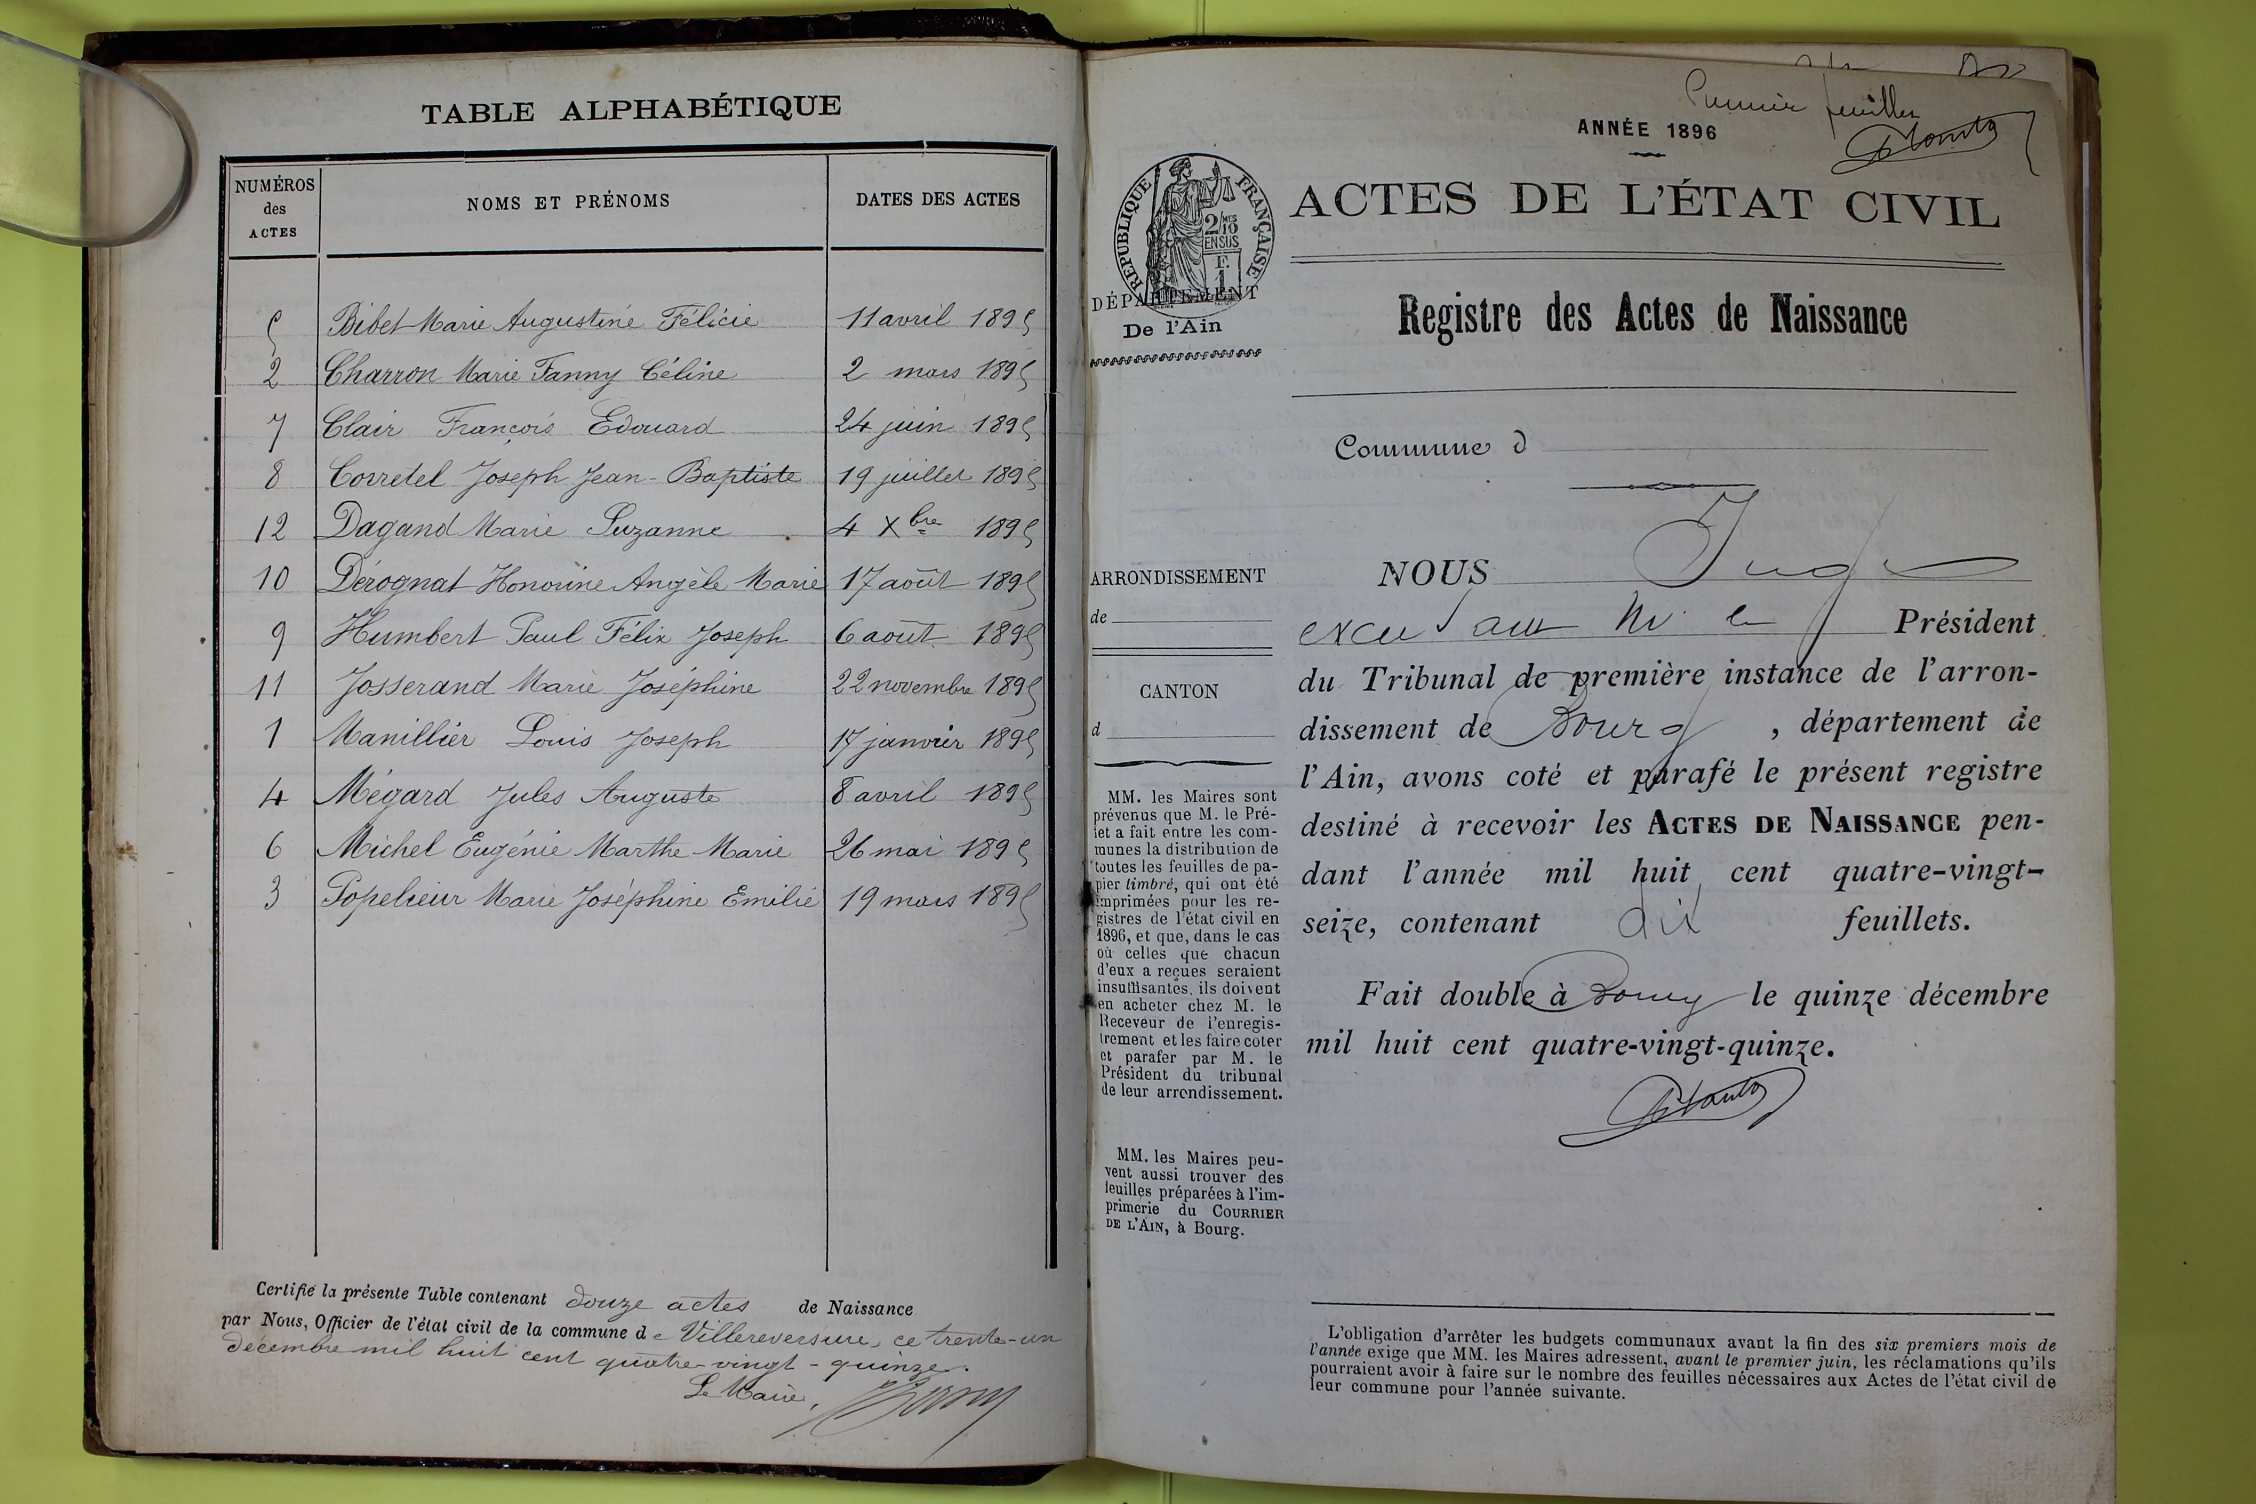 TABLE ALPHABÉTIQUE
NUMÉROS des ACTES NOMS ET PRÉNOMS DATES DES ACTES
5 Bibet Marie Augustine Félicie 11 avril 1895
2 Charron Marie Fanny Céline 2 mars 1895
7 Clair François Edouard 24 juin 1895
8 Corretel Joseph Jean-Baptiste 19 juillet 1895
12 Dagand Marie Suzanne 4 Xbre 1895
10 Dérognat Honorine Angèle Marie 17 août 1895
9 Humbert Paul Félix Joseph 6 août 1895
11 Josserand Marie Joséphine 22 novembre 1895
1 Manillier Louis Joseph 17 janvier 1895
4 Mégard Jules Auguste 8 avril 1895
6 Michel Eugénie Marthe Marie 26 mai 1895
3 Popelieur Marie Joséphine Emilie 19 mars 1895
Certifié la présente Table contenant douze actes de Naissance
par Nous, Officier de l'état civil de la commune de Villereversure, ce trente-un
décembre mil huit cent quatre-vingt-quinze.
Le Maire,
Premier feuillet
ANNÉE 1896
RÉPUBLIQUE FRANÇAISE
2/10mes
EN SUS
F.
1
ACTES DE L'ÉTAT CIVIL
DÉPARTEMENT
De l'Ain
Registre des Actes de Naissance
Commune d
ARRONDISSEMENT
de
CANTON
d
MM. les Maires sont
prévenus que M. le Pré-
fet a fait entre les com-
munes la distribution de
toutes les feuilles de pa-
pier timbré, qui ont été
imprimées pour les re-
gistres de l'état civil en
1896, et que, dans le cas
où celles que chacun
d'eux a reçues seraient
insuffisantes, ils doivent
en acheter chez M. le
Receveur de l'enregis-
trement et les faire coter
et parafer par M. le
Président du tribunal
de leur arrondissement.
MM. les Maires peu-
vent aussi trouver des
feuilles préparées à l'im-
primerie du COURRIER
DE L'AIN, à Bourg.
NOUS Juge
Président
du Tribunal de première instance de l'arron-
dissement de Bourg, département de
l'Ain, avons coté et parafé le présent registre
destiné à recevoir les ACTES DE NAISSANCE pen-
dant l'année mil huit cent quatre-vingt-
seize, contenant dix feuillets.
Fait double à Bourg le quinze décembre
mil huit cent quatre-vingt-quinze.
L'obligation d'arrêter les budgets communaux avant la fin des six premiers mois de
l'année exige que MM. les Maires adressent, avant le premier juin, les réclamations qu'ils
pourraient avoir à faire sur le nombre des feuilles nécessaires aux Actes de l'état civil de
leur commune pour l'année suivante.